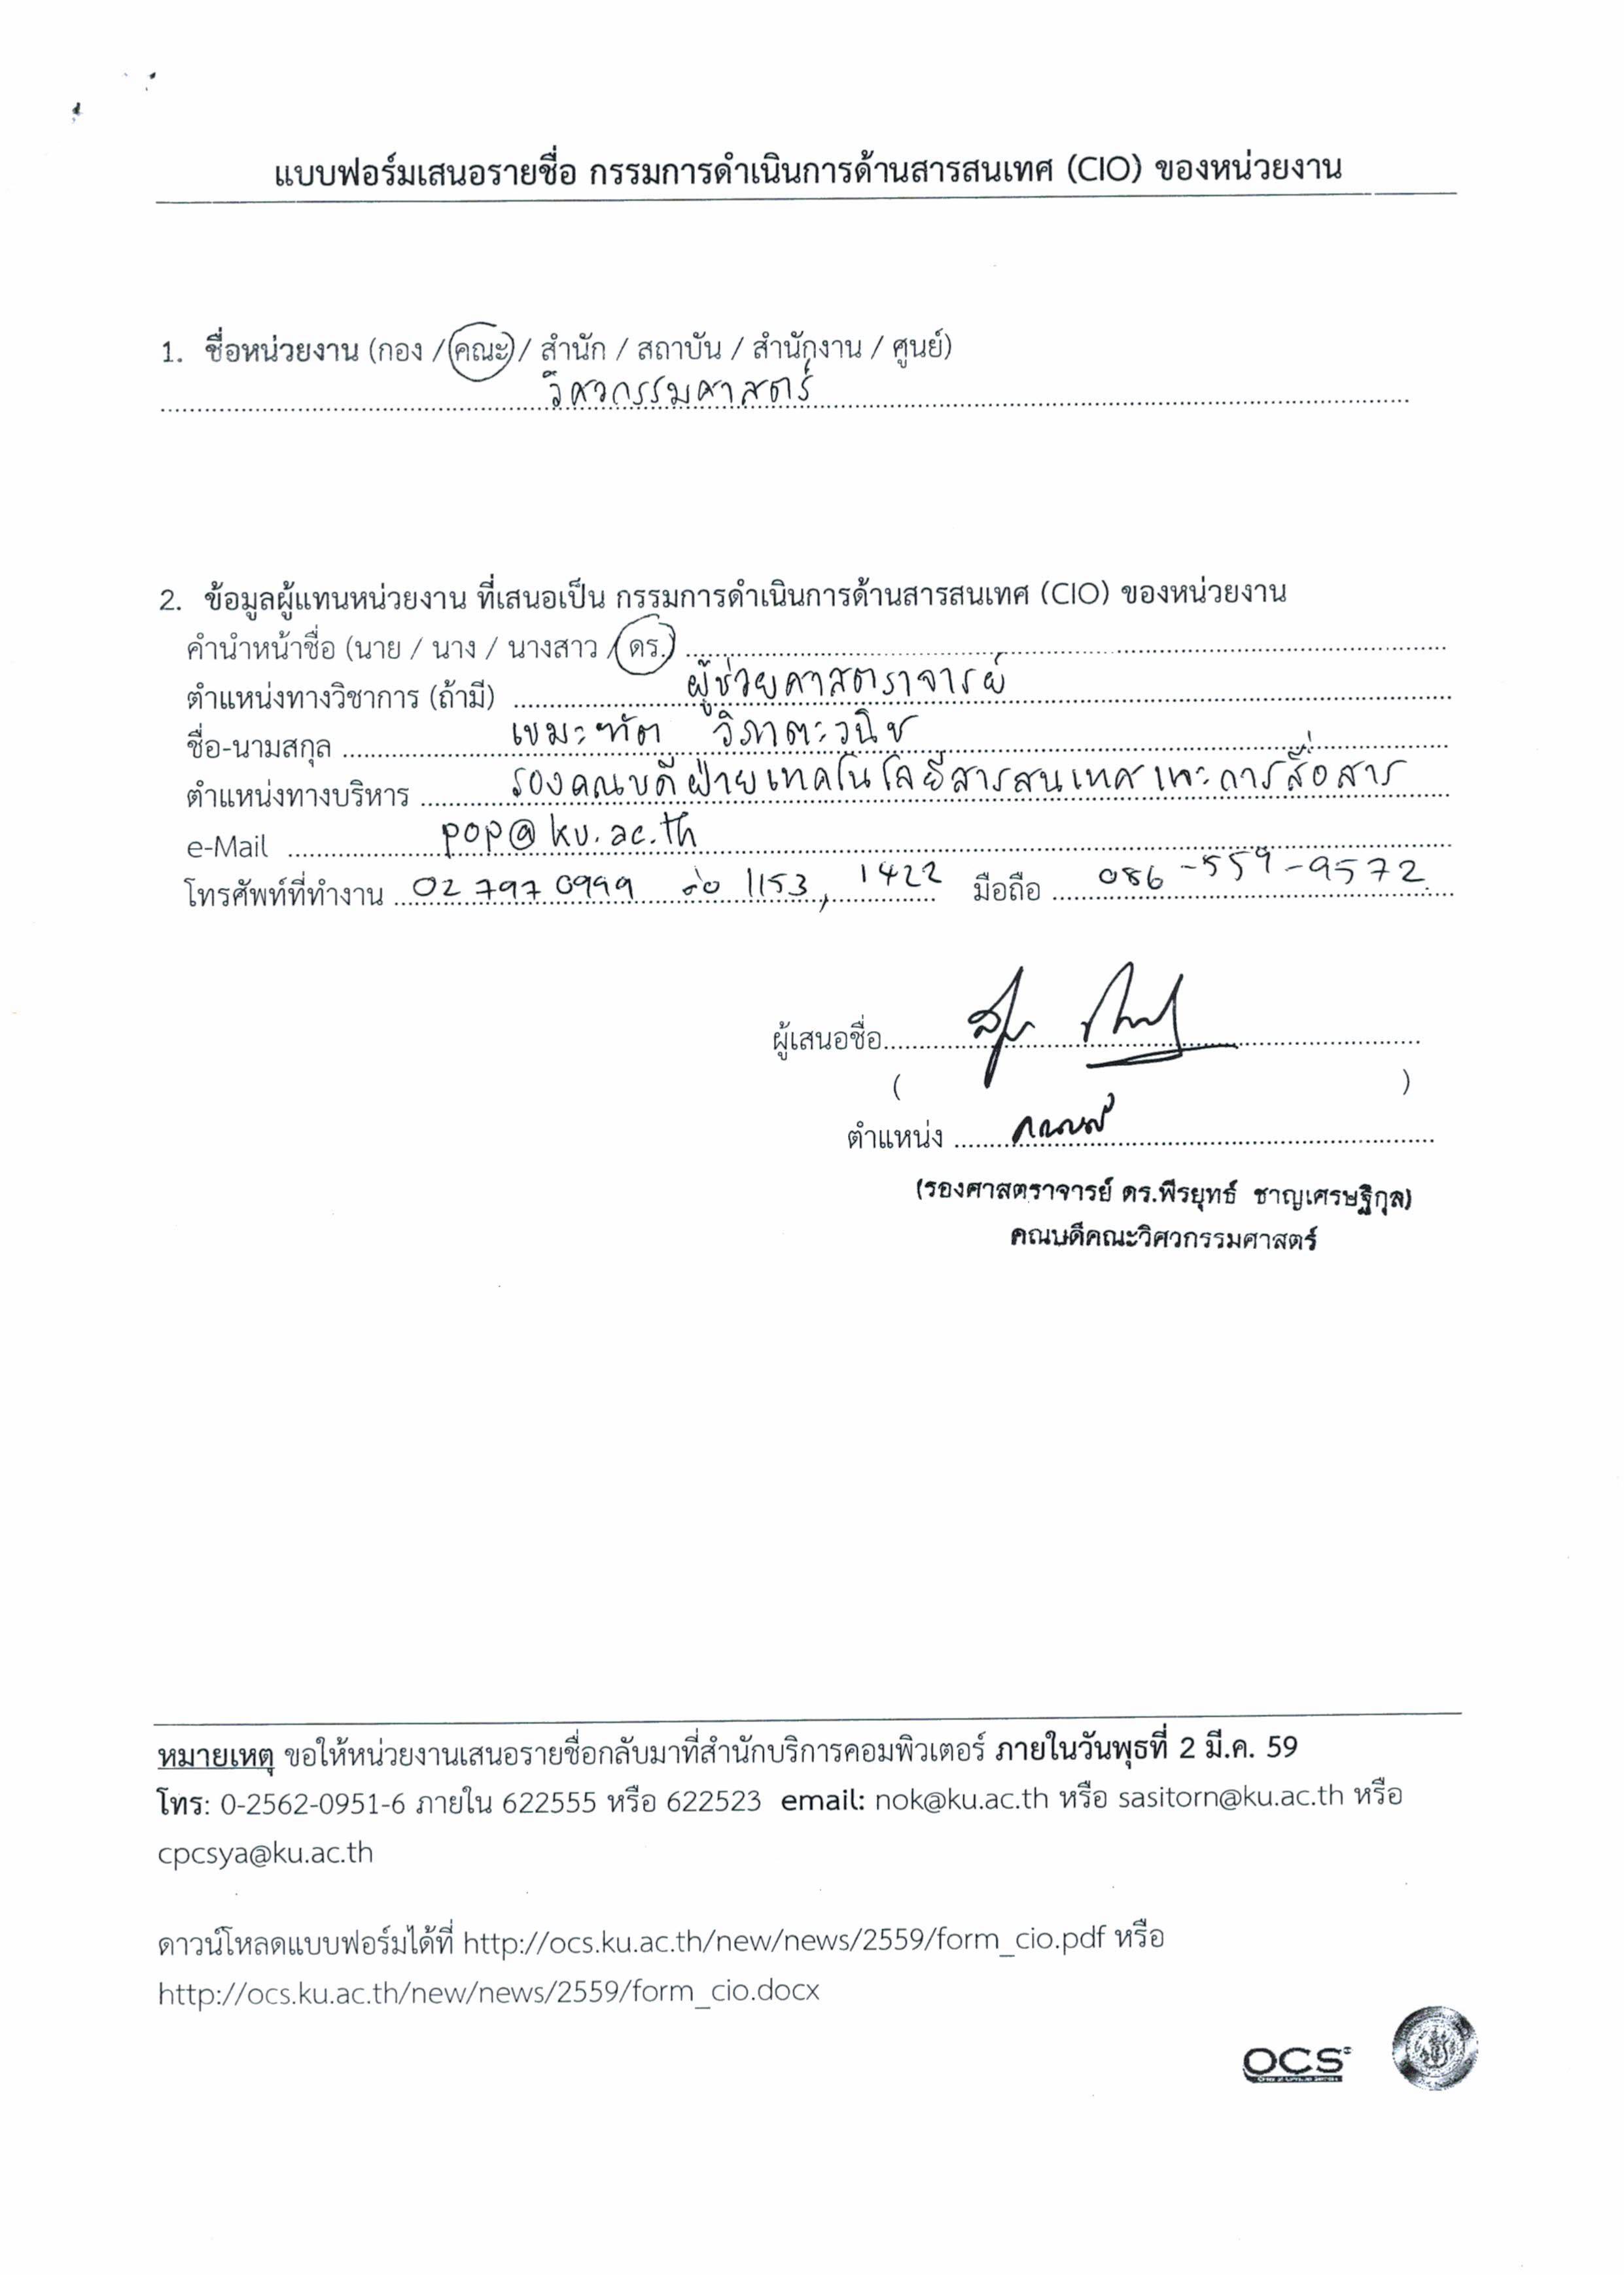 แบบฟอร์มเสนอรายชื่อ กรรมการดำเนินการด้านสารสนเทศ (CIO) ของหน่วยงาน
1. ชื่อหน่วยงาน (กอง / คณะ / สำนัก / สถาบัน / สำนักงาน / ศูนย์)
วิศวกรรมศาสตร์
2. ข้อมูลผู้แทนหน่วยงาน ที่เสนอเป็น กรรมการดำเนินการด้านสารสนเทศ (CIO) ของหน่วยงาน
คำนำหน้าชื่อ (นาย / นาง / นางสาว / ดร.)
ตำแหน่งทางวิชาการ (ถ้ามี) ผู้ช่วยศาสตราจารย์
ชื่อ-นามสกุล เขมะฑัต วิภาตะวนิช
ตำแหน่งทางบริหาร รองคณบดีฝ่ายเทคโนโลยีสารสนเทศและการสื่อสาร
e-Mail pop@ku.ac.th
โทรศัพท์ที่ทำงาน 02 797 0999 ต่อ 1153, 1422 มือถือ 086-559-9572
ผู้เสนอชื่อ
( )
ตำแหน่ง คณบดี
(รองศาสตราจารย์ ดร.พีรยุทธ์ ชาญเศรษฐิกุล)
คณบดีคณะวิศวกรรมศาสตร์
หมายเหตุ ขอให้หน่วยงานเสนอรายชื่อกลับมาที่สำนักบริการคอมพิวเตอร์ ภายในวันพุธที่ 2 มี.ค. 59
โทร: 0-2562-0951-6 ภายใน 622555 หรือ 622523 email: nok@ku.ac.th หรือ sasitorn@ku.ac.th หรือ
cpcsya@ku.ac.th
ดาวน์โหลดแบบฟอร์มได้ที่ http://ocs.ku.ac.th/new/news/2559/form_cio.pdf หรือ
http://ocs.ku.ac.th/new/news/2559/form_cio.docx
OCS